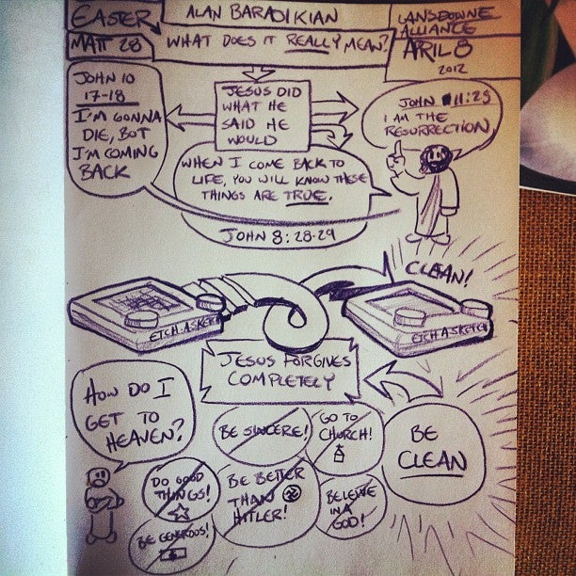 EASTER
MATT 28
ALAN BARADIKIAN
WHAT DOES IT REALLY MEAN?
LANSDOWNE
ALLIANCE
ARIL 8
2012
JOHN 10
17-18
I'M GONNA
DIE, BUT
I'M COMING
BACK
JESUS DID
WHAT HE
SAID HE
WOULD
JOHN 11:25
I AM THE
RESURRECTION
WHEN I COME BACK TO
LIFE, YOU WILL KNOW THESE
THINGS ARE TRUE.
JOHN 8:28-29
CLEAN!
ETCH-A-SKETCH
ETCH A SKETCH
JESUS FORGIVES
COMPLETELY
HOW DO I
GET TO
HEAVEN?
BE SINCERE!
GO TO
CHURCH!
BE
CLEAN
DO GOOD
THINGS!
BE BETTER
THAN
HITLER!
BELIEVE
IN A
GOD!
BE GENEROUS!